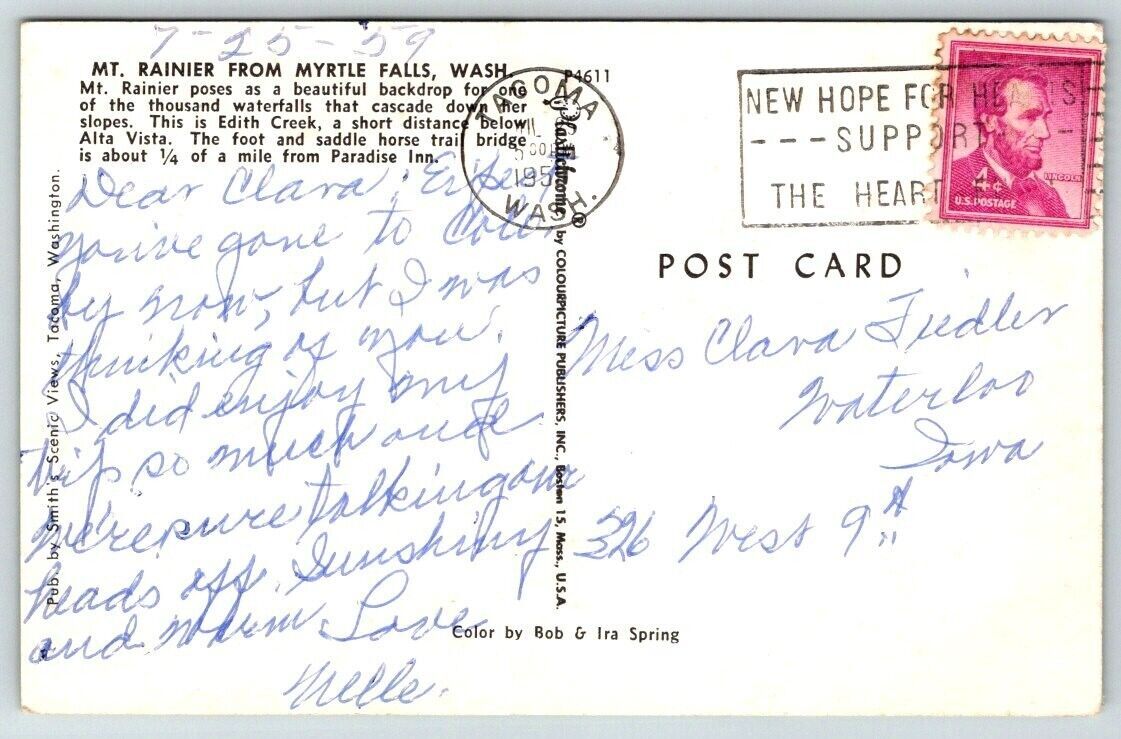 7-25-59
MT. RAINIER FROM MYRTLE FALLS, WASH.
Mt. Rainier poses as a beautiful backdrop for one
of the thousand waterfalls that cascade down her
slopes. This is Edith Creek, a short distance below
Alta Vista. The foot and saddle horse trail bridge
is about ¼ of a mile from Paradise Inn.
Dear Clara,
you've gone to
by now, but I was
thinking of you.
I did enjoy my
trip so much and
we're sure talking our
heads off. Sunshiny
and warm. Love
Nelle.
Pub. by Smith's Scenic Views, Tacoma, Washington.
P4611
Plastichrome® by COLOURPICTURE PUBLISHERS, INC., Boston 15, Mass., U.S.A.
TACOMA
195
WASH.
NEW HOPE FOR HEARTS
---SUPPORT---
THE HEART
LINCOLN
4¢
U.S. POSTAGE
POST CARD
Miss Clara Fiedler
Waterloo
Iowa
326 West 9th
Color by Bob & Ira Spring